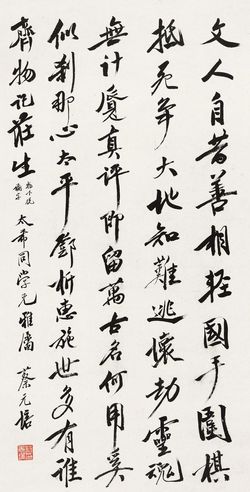 文人自昔善相輕國手圍棋
抵死爭大地知難逃懷劫靈魂
無計覓真評即留萬古名何用奚
似剎那心太平鄧析惠施世多有誰
齊物記莊生
太希同學兄雅屬 蔡元培